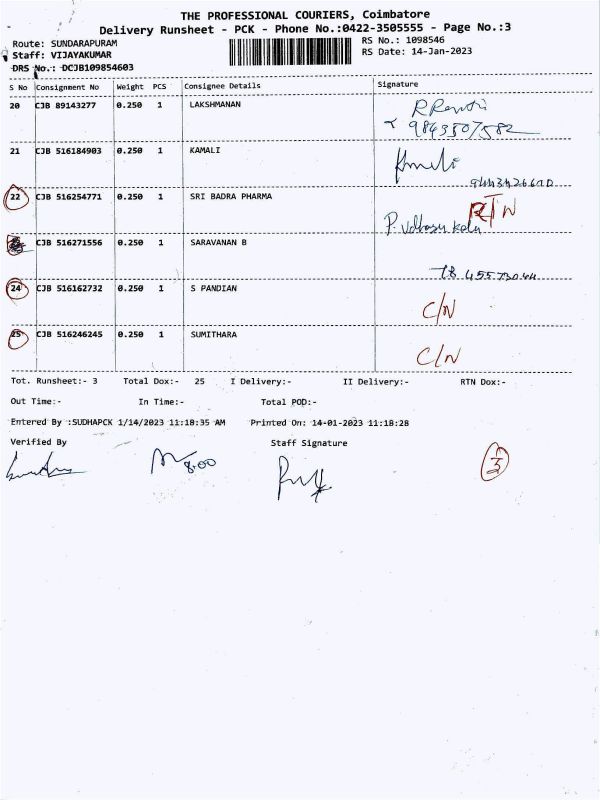 THE PROFESSIONAL COURIERS, Coimbatore
Delivery Runsheet - PCK - Phone No.:0422-3505555 - Page No.:3
Route: SUNDARAPURAM RS No.: 1098546
Staff: VIJAYAKUMAR RS Date: 14-Jan-2023
DRS No.: DCJB109854603
S No Consignment No Weight PCS Consignee Details Signature
20 CJB 89143277 0.250 1 LAKSHMANAN
9843507582
21 CJB 516184903 0.250 1 KAMALI
22 CJB 516254771 0.250 1 SRI BADRA PHARMA RTN
CJB 516271556 0.250 1 SARAVANAN B
24 CJB 516162732 0.250 1 S PANDIAN C/N
25 CJB 516246245 0.250 1 SUMITHARA C/N
Tot. Runsheet:- 3 Total Dox:- 25 I Delivery:- II Delivery:- RTN Dox:-
Out Time:- In Time:- Total POD:-
Entered By :SUDHAPCK 1/14/2023 11:18:35 AM Printed On: 14-01-2023 11:18:28
Verified By Staff Signature
8:00
3